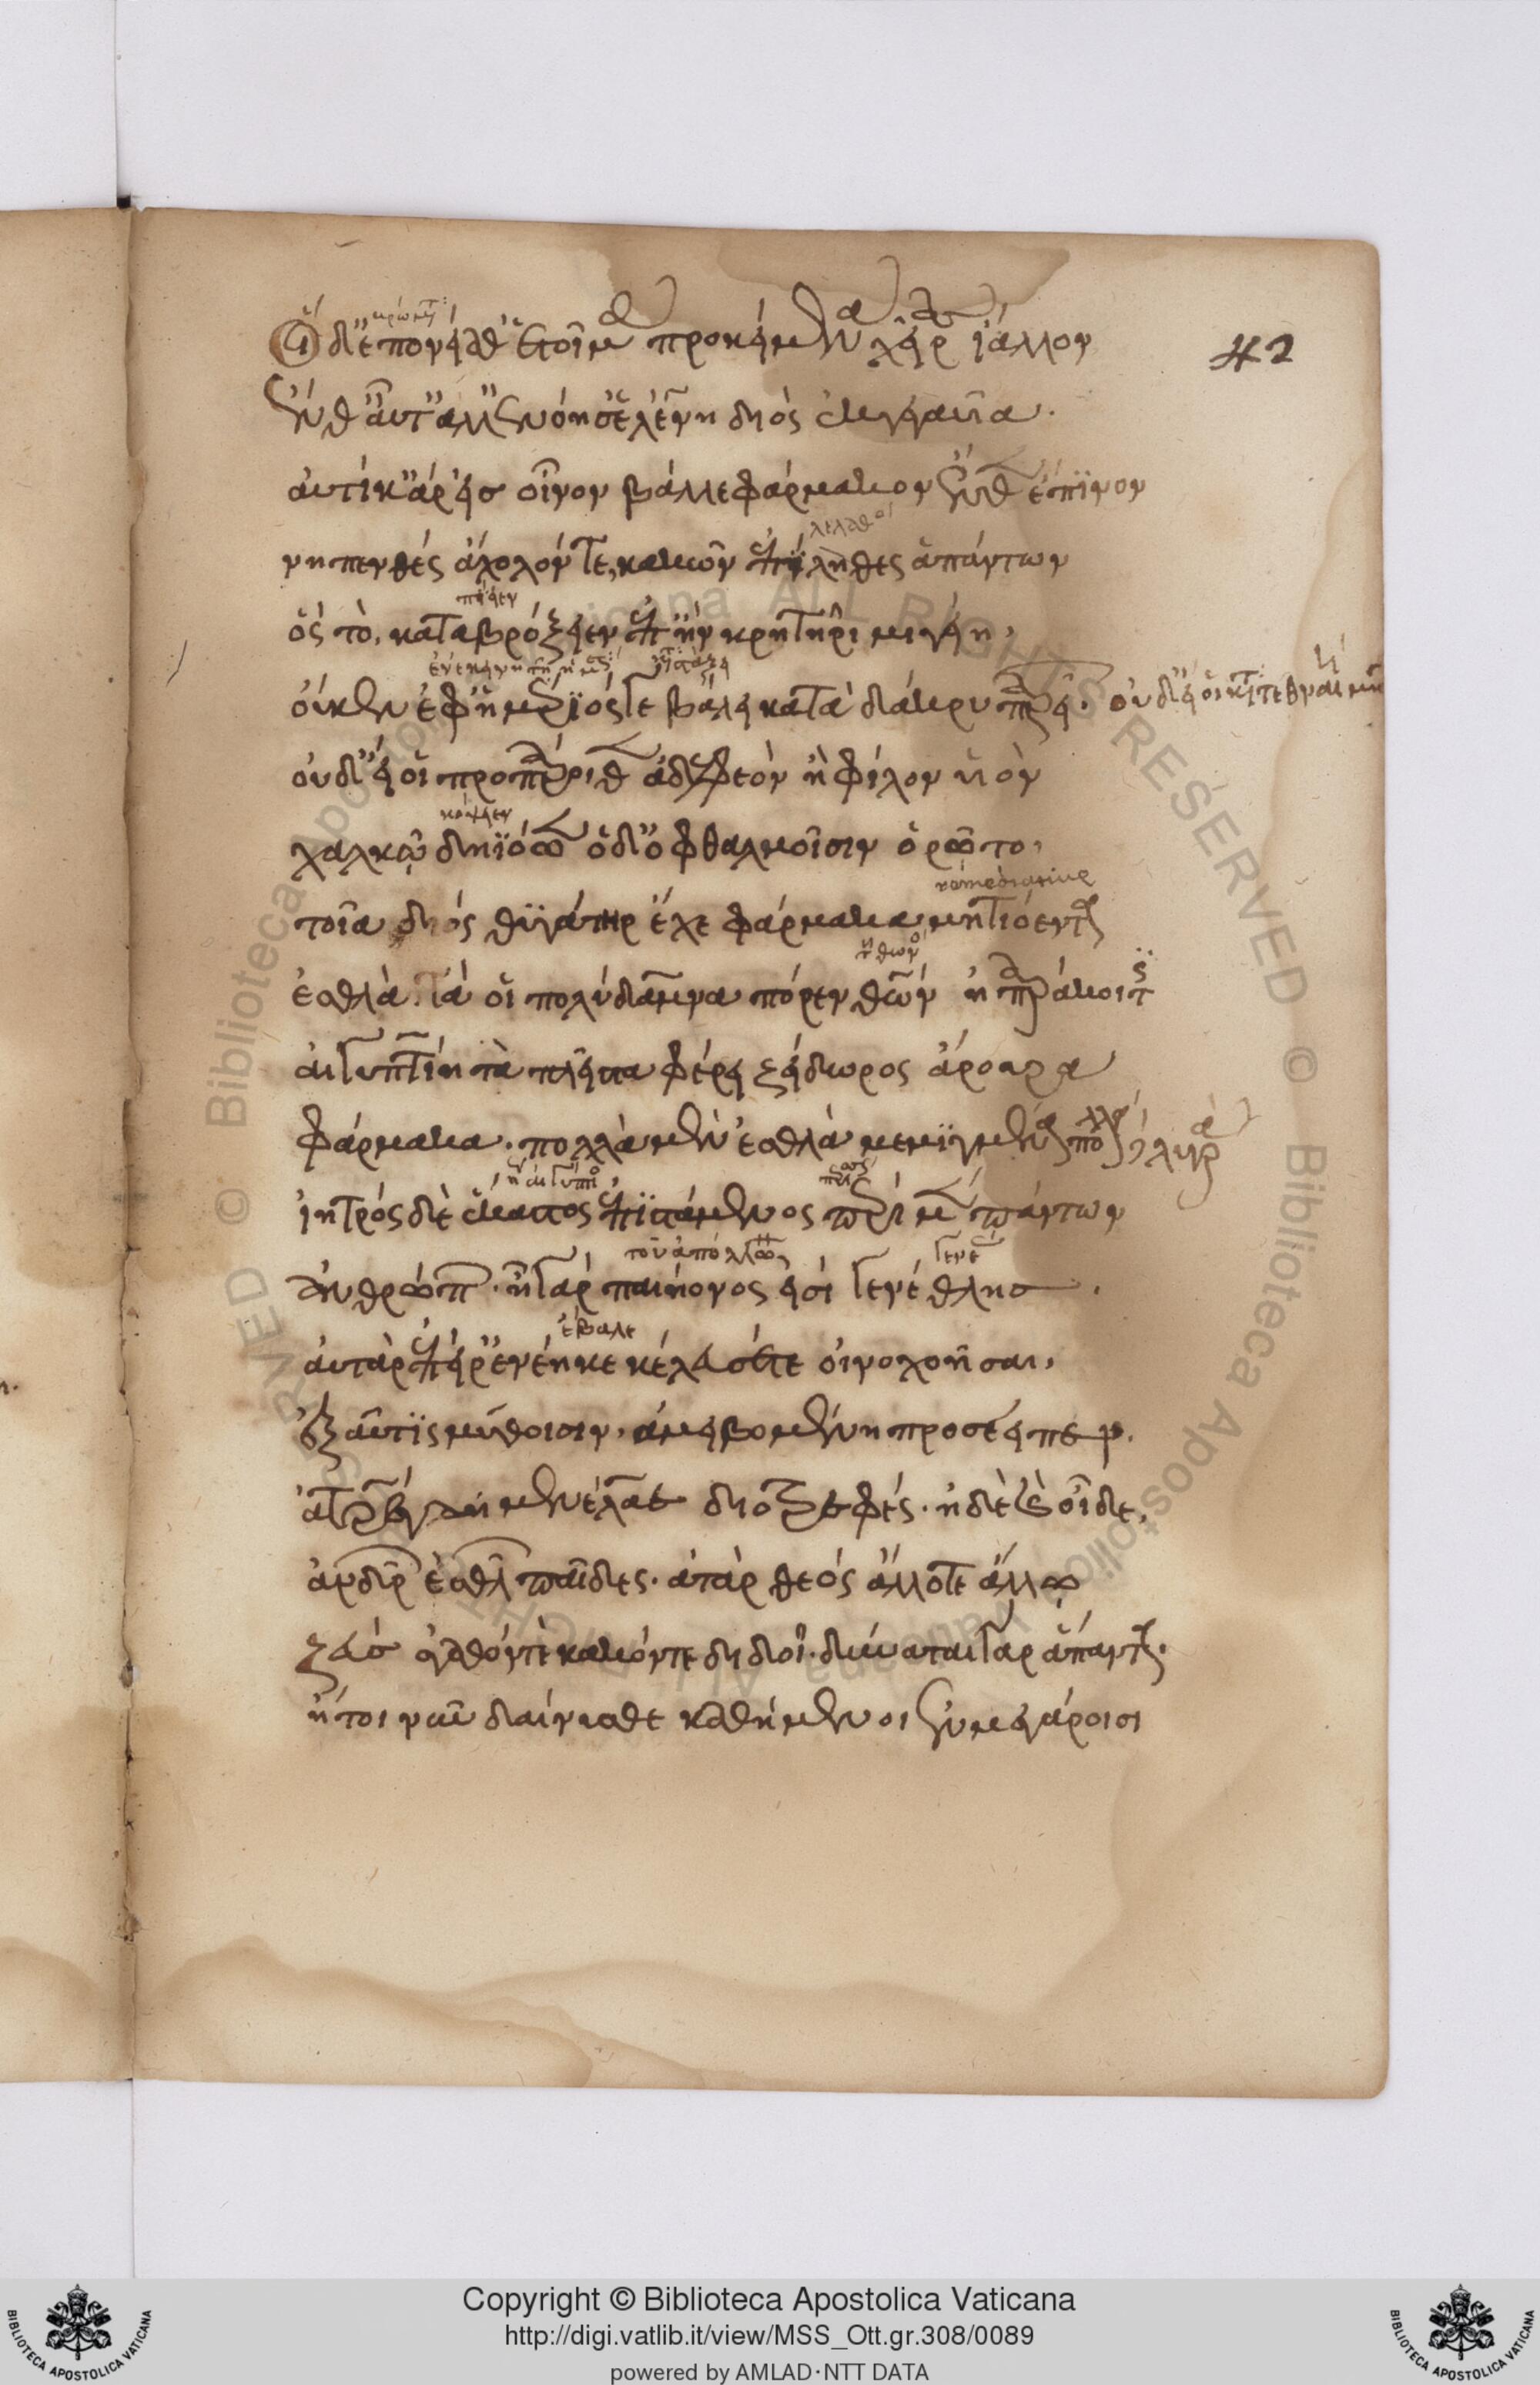 οἱ δ' ἐπ' ὀνείαθ' ἑτοῖμα προκείμενα χεῖρ ἴαλλον
42
ἔνθ' αὖτ' ἄλλ' ἐνόησ' ἑλένη διὸς ἐκγεγαυῖα.
αὐτίκ' ἄρ' εἰς οἶνον βάλλε φάρμακον ἔνθεν ἔπινον
νηπενθές ἄχολόν τε, κακῶν ἐπίληθες ἁπάντων
ὃς τὸ, καταβρόξειεν ἐπὴν κρητῆρι μιγείη,
πίειεν
οὔκεν ἐφημέριός γε βάλη κατὰ δάκρυ παρειῶν. οὐδ' εἴ οἱ κατατεθναίη μήτηρ
οὐδ' εἴ οἱ προπάροιθεν ἀδελφεὸν ἢ φίλον υἱὸν
χαλκῷ δηϊόῳεν ὁ δ' ὀφθαλμοῖσιν ὁρῷτο,
τοῖα διὸς θυγάτηρ ἔχε φάρμακα μητιόεντα
ἐσθλὰ. τά οἱ πολύδαμνα πόρεν θῶνος παράκοιτις
αἰγυπτίη τὰ πλεῖστα φέρει ζείδωρος ἄρουρα
φάρμακα. πολλὰ μὲν ἐσθλὰ μεμιγμένα πολλὰ, λυγρὰ
ἰητρὸς δὲ ἕκαστος ἐπιστάμενος περὶ πάντων
ἀνθρώπων. ἦ γάρ παιήονος εἰσὶ γενέθλης.
ἔβαλε
αὐτὰρ ἐπεί ῥ' ἐνέηκε κέλευσέ τε οἰνοχοῆσαι,
ἐξαῦτις μύθοισιν, ἀμειβομένη προσέειπεν.
ἀτρείδη μενέλαε διοτρεφές. ἠδὲ καὶ οἵδε,
ἀνδρῶν ἐσθλῶν παῖδες. ἀτὰρ θεός ἄλλοτε ἄλλῳ
ζεὺς ἀγαθόν τε κακόν τε διδοῖ. δύναται γὰρ ἅπαντα.
ἤτοι νῦν δαίνυσθε καθήμενοι ἐν μεγάροισι
Copyright © Biblioteca Apostolica Vaticana
http://digi.vatlib.it/view/MSS_Ott.gr.308/0089
powered by AMLAD·NTT DATA